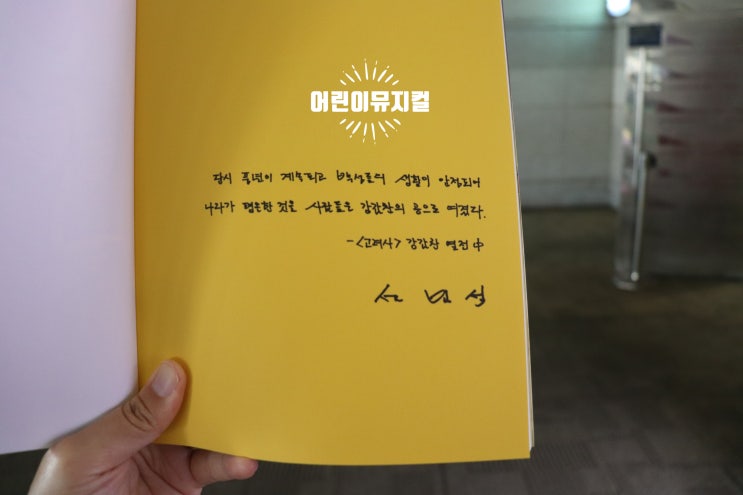 어린이뮤지컬
당시 풍년이 계속되고 백성들의 생활이 안정되어
나라가 평온한 것을 사람들은 강감찬의 공으로 여겼다.
-<고려사> 강감찬 열전 中
설